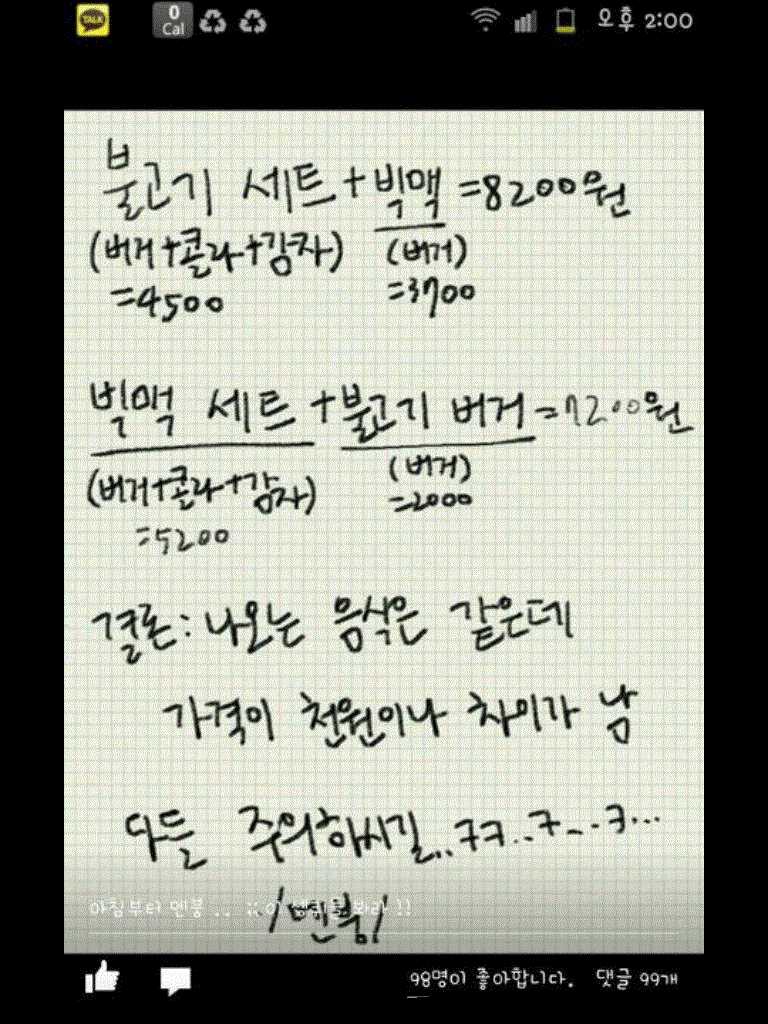 TALK
0
Cal
오후 2:00
불고기 세트+빅맥=8200원
(버거+콜라+감자) (버거)
=4500 =3700
빅맥 세트+불고기 버거=7200원
(버거+콜라+감자) (버거)
=5200 =2000
결론: 나오는 음식은 같은데
가격이 천원이나 차이가 남
다들 주의하시길..ㅋㅋ..ㅋ...ㅋ...
아침부터 멘붕 .. 봐라 !!
/멘붕/
98명이 좋아합니다. 댓글 99개